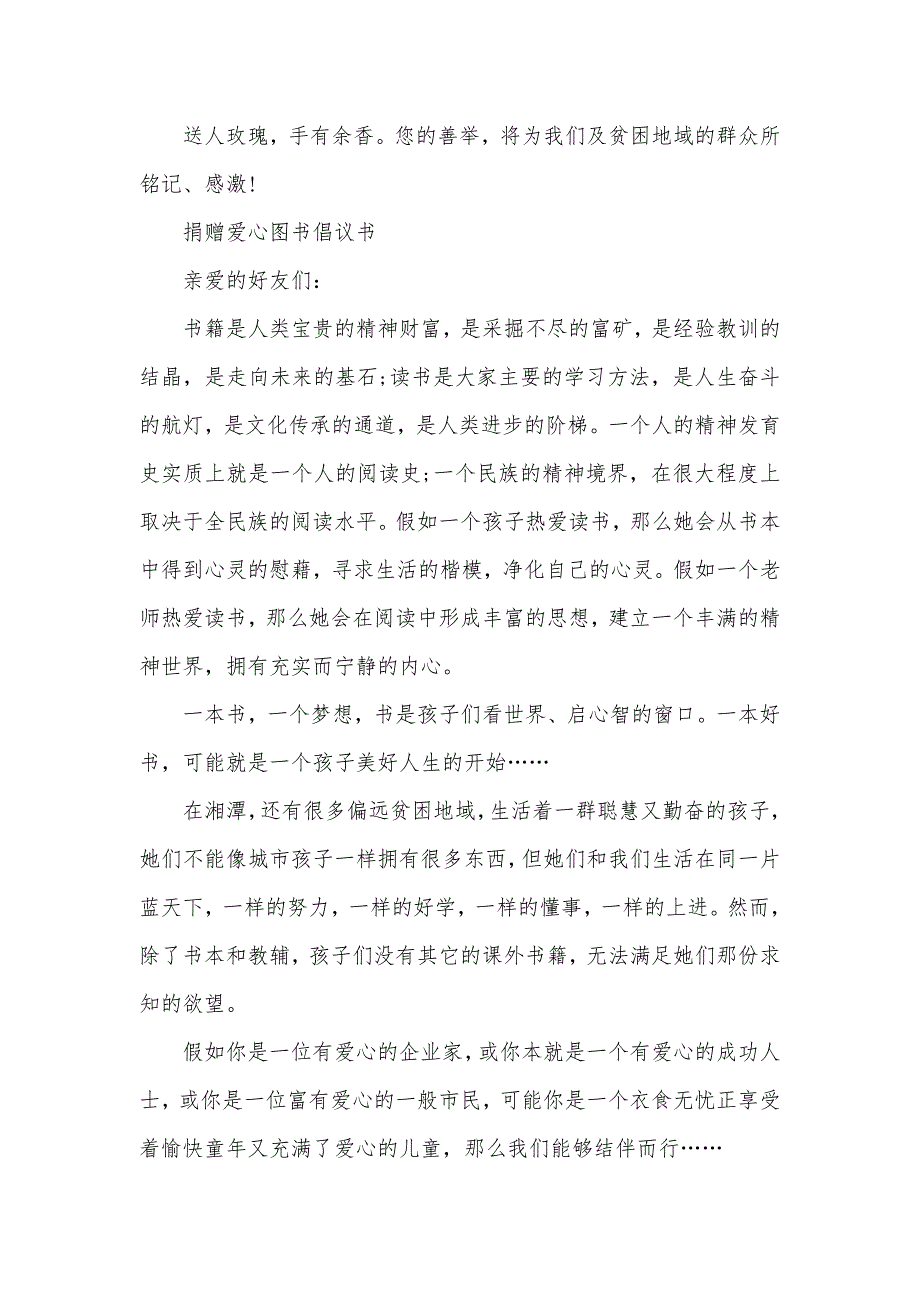 送人玫瑰，手有余香。您的善举，将为我们及贫困地域的群众所
铭记、感激!
捐赠爱心图书倡议书
亲爱的好友们：
书籍是人类宝贵的精神财富，是采掘不尽的富矿，是经验教训的
结晶，是走向未来的基石;读书是大家主要的学习方法，是人生奋斗
的航灯，是文化传承的通道，是人类进步的阶梯。一个人的精神发育
史实质上就是一个人的阅读史;一个民族的精神境界，在很大程度上
取决于全民族的阅读水平。假如一个孩子热爱读书，那么她会从书本
中得到心灵的慰藉，寻求生活的楷模，净化自己的心灵。假如一个老
师热爱读书，那么她会在阅读中形成丰富的思想，建立一个丰满的精
神世界，拥有充实而宁静的内心。
一本书，一个梦想，书是孩子们看世界、启心智的窗口。一本好
书，可能就是一个孩子美好人生的开始……
在湘潭，还有很多偏远贫困地域，生活着一群聪慧又勤奋的孩子，
她们不能像城市孩子一样拥有很多东西，但她们和我们生活在同一片
蓝天下，一样的努力，一样的好学，一样的懂事，一样的上进。然而，
除了书本和教辅，孩子们没有其它的课外书籍，无法满足她们那份求
知的欲望。
假如你是一位有爱心的企业家，或你本就是一个有爱心的成功人
士，或你是一位富有爱心的一般市民，可能你是一个衣食无忧正享受
着愉快童年又充满了爱心的儿童，那么我们能够结伴而行……